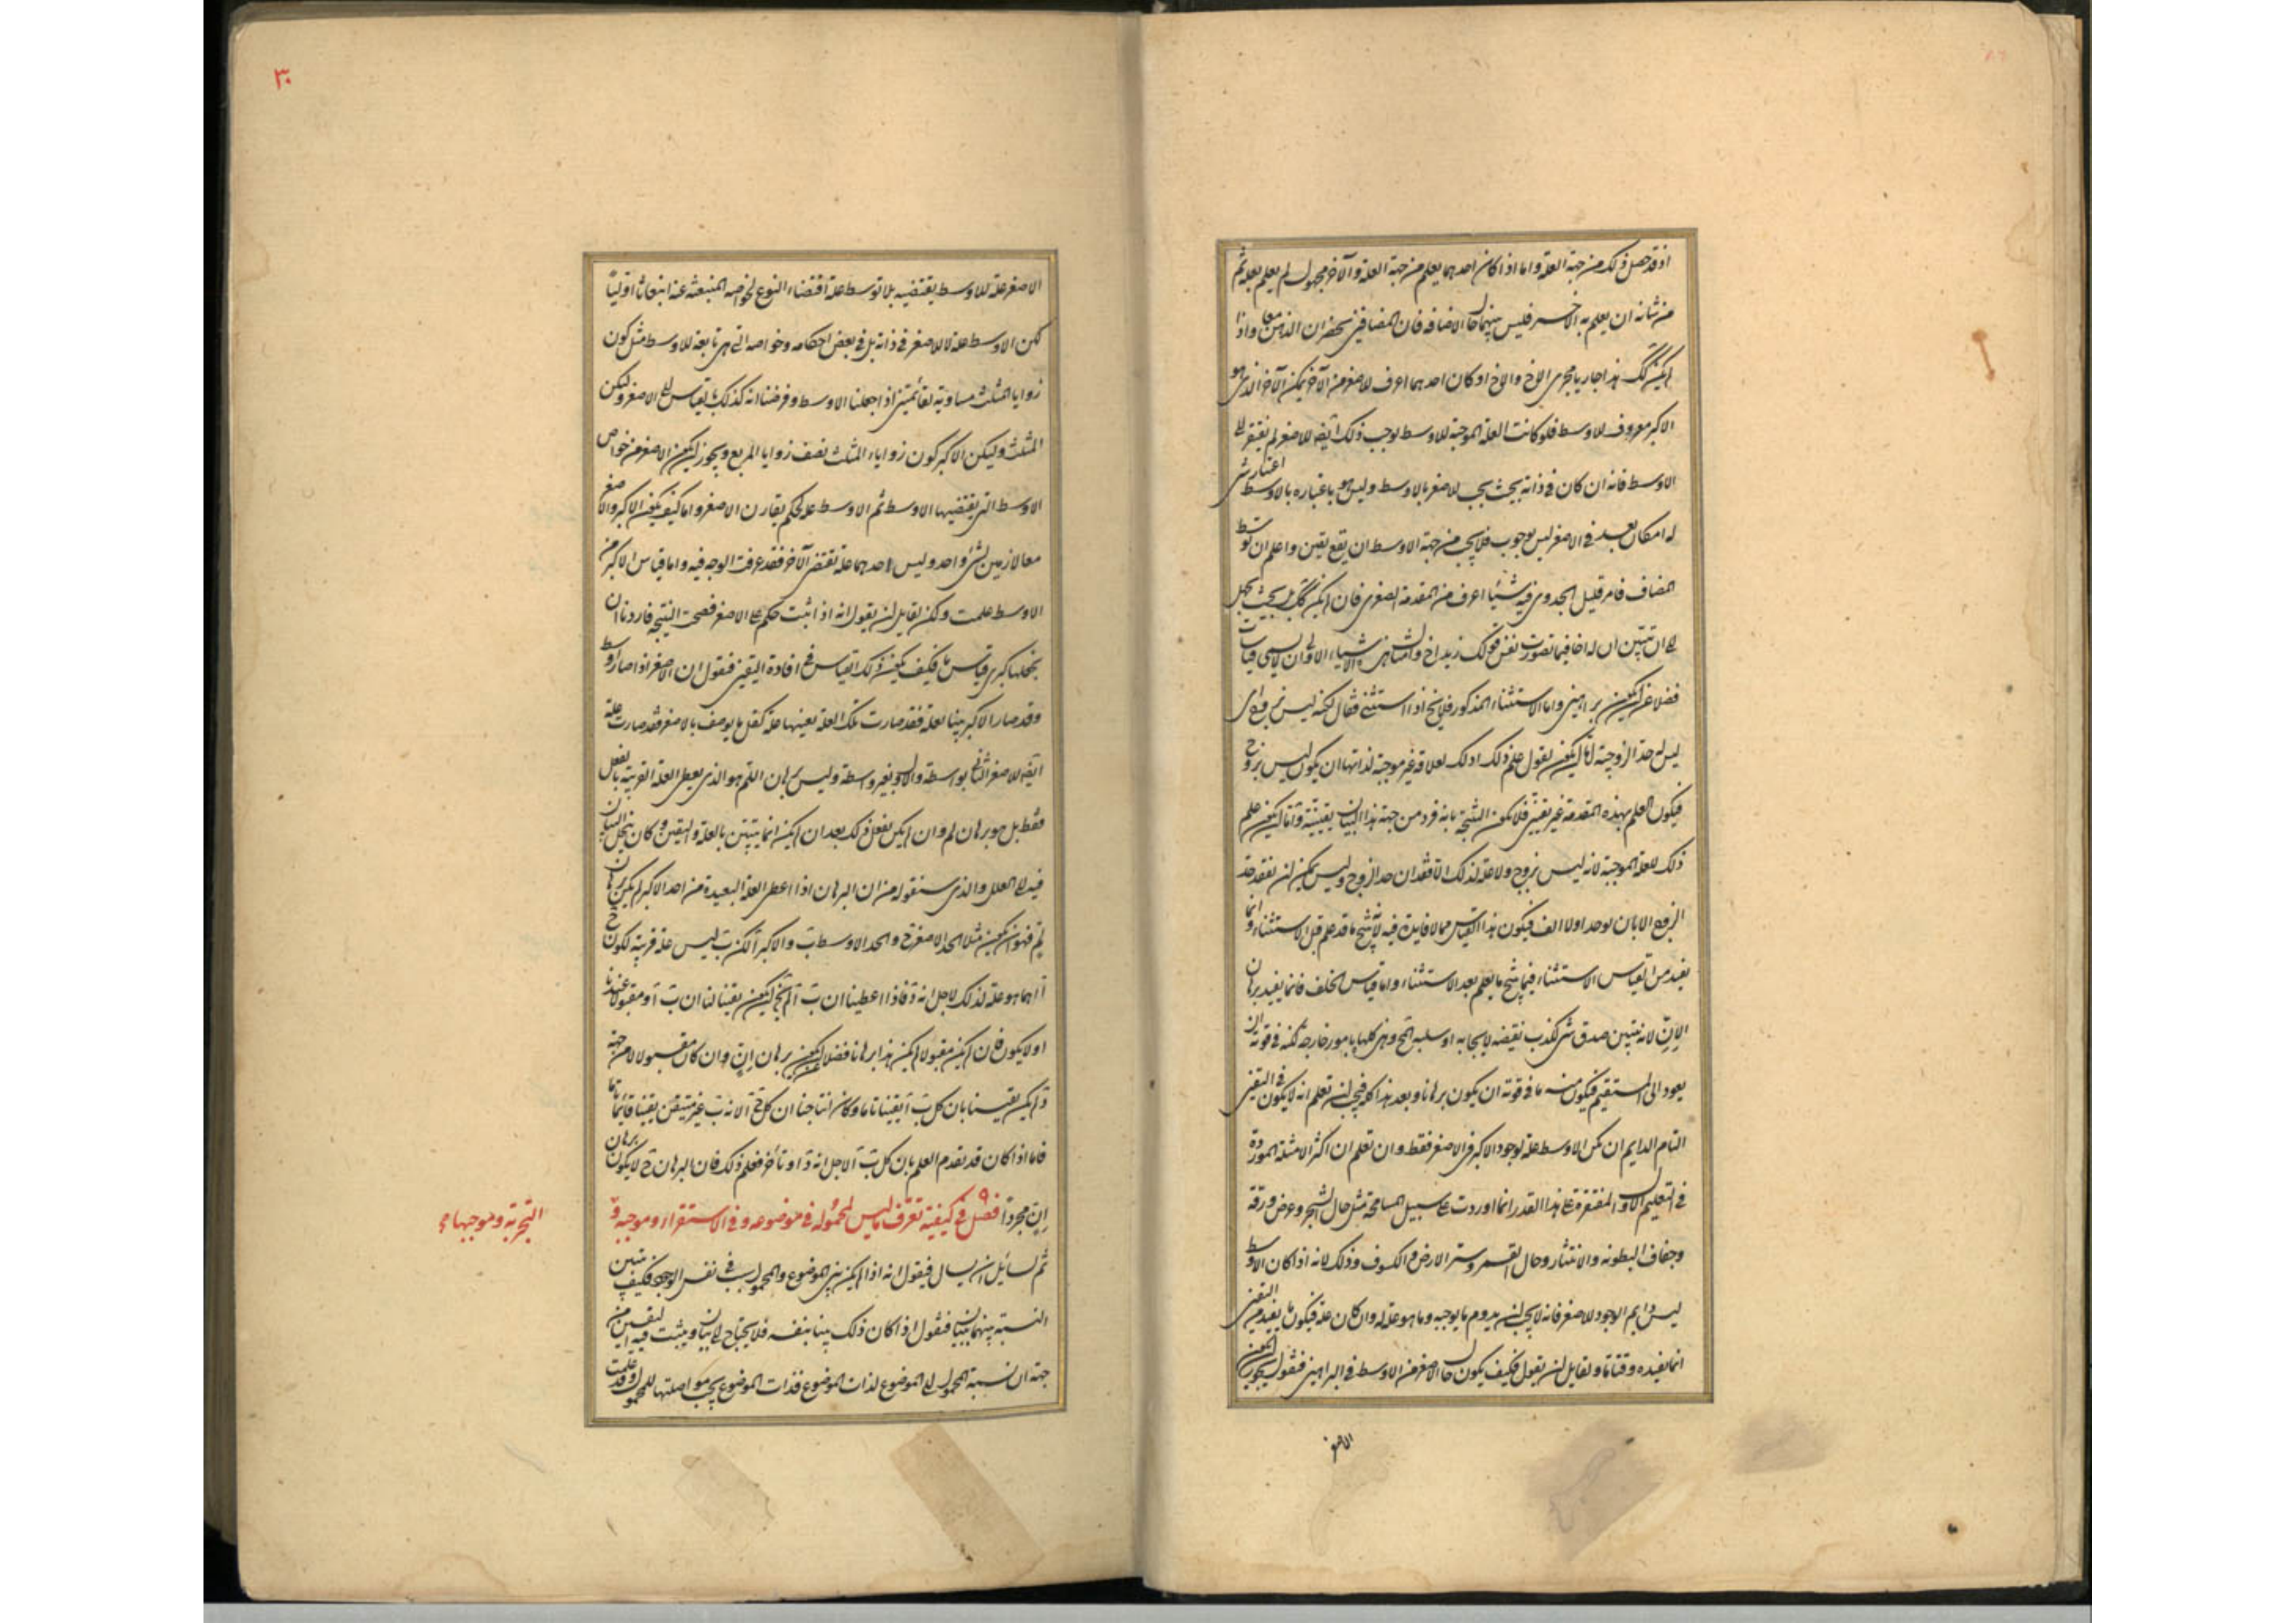 اذ قد حصل ذلك من جهة العلة واما اذا كان احدهما يعلم من جهة العلة والآخر مجهول لم يعلم بعلة ثم
من شانه ان يعلم به الآخر فليس بينهما حال الاضافة فان المضافين يحضران الذهن معا واذا
لم يكن كك هذا جاريا مجرى الاخ والاخ او كان احدهما اعرف للاصغر من الآخر لم يكن الآخر الذى هو
الاكبر معروف للاوسط فلو كانت العلة الموجبة للاوسط يوجب ذلك ايضا للاصغر لم يفتقر الى
الاوسط فانه ان كان فى ذاته بحيث يجب للاصغر بالاوسط وليس هو باعتباره بالاوسط اعتبار شى
له امكان بعد فى الاصغر ليس بوجوب فلا يجب من جهة الاوسط ان يقع يقين واعلم ان توسط
المضاف فامر قليل الجدوى فيه شيئا اعرف من المقدمة الصغرى فان لم يكن كك بل بحيث يجهل
الى ان تبين ان له اخا فيما تصورت نفس قولك زيد اخ وامثال هذه الاشياء الاولى ان لا يسمى قياسات
فضلا عن ان يكون براهين واما الاستثناء المذكور فلا ينج اذا استثنى فقال لكنه ليس بزوج اى
ليس له حد الزوجية لانه اما ان يكون يقول علم ذلك ادلك لعلاقة غير موجبة لذاتها ان يكون ليس بزوج
فيكون العلم بهذه المقدمة غير يقينى فلا يكون النتيجة بانه فرد من جهة هذا البيان يقينية واما ان يكون علم
ذلك للعلة الموجبة لانه ليس بزوج ولا علة لذلك الا فقدان حد الزوج وليس يمكن ان نفقد حد
الزوج الا بان يوجد اولا الف فيكون هذا القياس مما لا فايدة فيه لا ينتج ما قد علم قبل الاستثناء وانما
يفيد من القياس الاستثناء فيما ينتج ما يعلم بعد الاستثناء واما قياس الخلف فانما يفيد برهان
الانّ لانه يتبين صدق شى لكذب نقيضه لايجابه او سلبه المحال وهى كلها بامور خارجة لكنه فى قوته ان
يعود الى المستقيم فيكون منه ما فى قوته ان يكون برهانا وبعد هذا كله فيجب ان تعلم انه لا يكون فى اليقين
التام الدايم ان يكن الاوسط علة لوجود الاكبر فى الاصغر فقط وان تعلم ان اكثر الامثلة الموردة
فى التعليم الاول المقتصرة على هذا القدر انما اوردت على سبيل المسامحة مثل حال الشجر وعرض ورقه
وجفاف البطونه والانتثار وحال القمر وستر الارض والكسوف وذلك لانه اذا كان الاوسط
ليس دايم الوجود للاصغر فانه لا يجب ان يدوم ما يوجبه وما هو علة له وان كان علة فيكون ما يفيد من اليقين
انما يفيده وقتا ما ولقايل ان يقول فكيف يكون حال الاصغر من الاوسط فى البراهين فنقول يجوز ان يكون
الاصغر
٣٠
الاصغر علة للاوسط يقتضيه بلا توسط علة اقتضاء النوع لخواصه المنبعثة عنه انبعاثا اوليًا
لكن الاوسط علة لا للاصغر فى ذاته بل فى بعض احكامه وخواصه التى هى تابعة للاوسط مثل كون
زوايا المثلث مساوية لقائمتين اذا جعلنا الاوسط وفرضنا انه كذلك بقياس الى الاصغر وليكن
المثلث وليكن الاكبر كون زوايا المثلث نصف زوايا المربع ويجوز ان يكون الاصغر من خواص
الاوسط التى يقتضيها الاوسط ثم الاوسط علة لحكم يقارن الاصغر واما كيف يكون الاكبر والاصغر
معا لازمين لشئ واحد وليس احدهما علة تقتضى الآخر فقد عرفت الوجه فيه واما قياس الاكبر من
الاوسط علمت ولكن لقايل ان يقول انه اذا ثبت حكم على الاصغر فصحت النتيجة فاردنا ان
نجعلها كبرى قياس ما فكيف يكون ذلك القياس فى افادة اليقين فنقول ان الاصغر اذا صار اوسط
وقد صار الاكبر بينا بعلة فقد صارت تلك العلة بعينها علة لكل ما يوصف بالاصغر فقد صارت علة
ايضا للاصغر الثانى بواسطة والاول بغير واسطة وليس برهان اللم هو الذى يعطى العلة القريبة بالفعل
فقط بل هو برهان لم وان لم يكن يفعل ذلك بعد ان لم يكن انما يتبين بالعلة واليقين وكان ينحل البيان
فيه الى العلل والذى سنقوله من ان البرهان اذا اعطى العلة البعيدة من احد الاكبر لم يكن برهان
لم فهو ان يكون مثلا الحد الاصغر ج والحد الاوسط ب والاكبر آ لكن ب ليس علة قريبة لكون ج
آ انما هو علة لذلك لاجل انه د فاذا اعطينا ان ب آ لم يخل ان يكون يقينا لنا ان ب آ ومقبولا عندنا
او لا يكون فان لم يكن مقبولا لم يكن هذا برهانا فضلا عن ان يكون برهان إنّ وان كان مقبولا لا من جهة
د لم يكن يقيننا بان كل ب آ يقينا تاما وكان انتاجنا ان كل ج آ لانه ب غير متيقن يقينا قائما تاما
فاما اذا كان قد تقدم العلم بان كل ب آ لاجل انه د او تأخر فعلم ذلك فان البرهان ح لا يكون برهان
إنّ مجردًا فصل ٩ فى كيفية تعرف ما ليس لمحموله فى موضوعه و فى الاستقراء وموجبه و
التجربة وموجبها
ثم لسائل ان يسال فيقول انه اذا لم يكن بين الموضوع والمحمول سبب فى نفس الوجود فكيف يتبين
النسبة بينهما ببيان فنقول اذا كان ذلك بينا بنفسه فلا يحتاج الى بيان ويثبت فيه اليقين من
جهة ان نسبة المحمول الى الموضوع لذات الموضوع فذات الموضوع يجب مواصلتها للمحمول وقد علمت